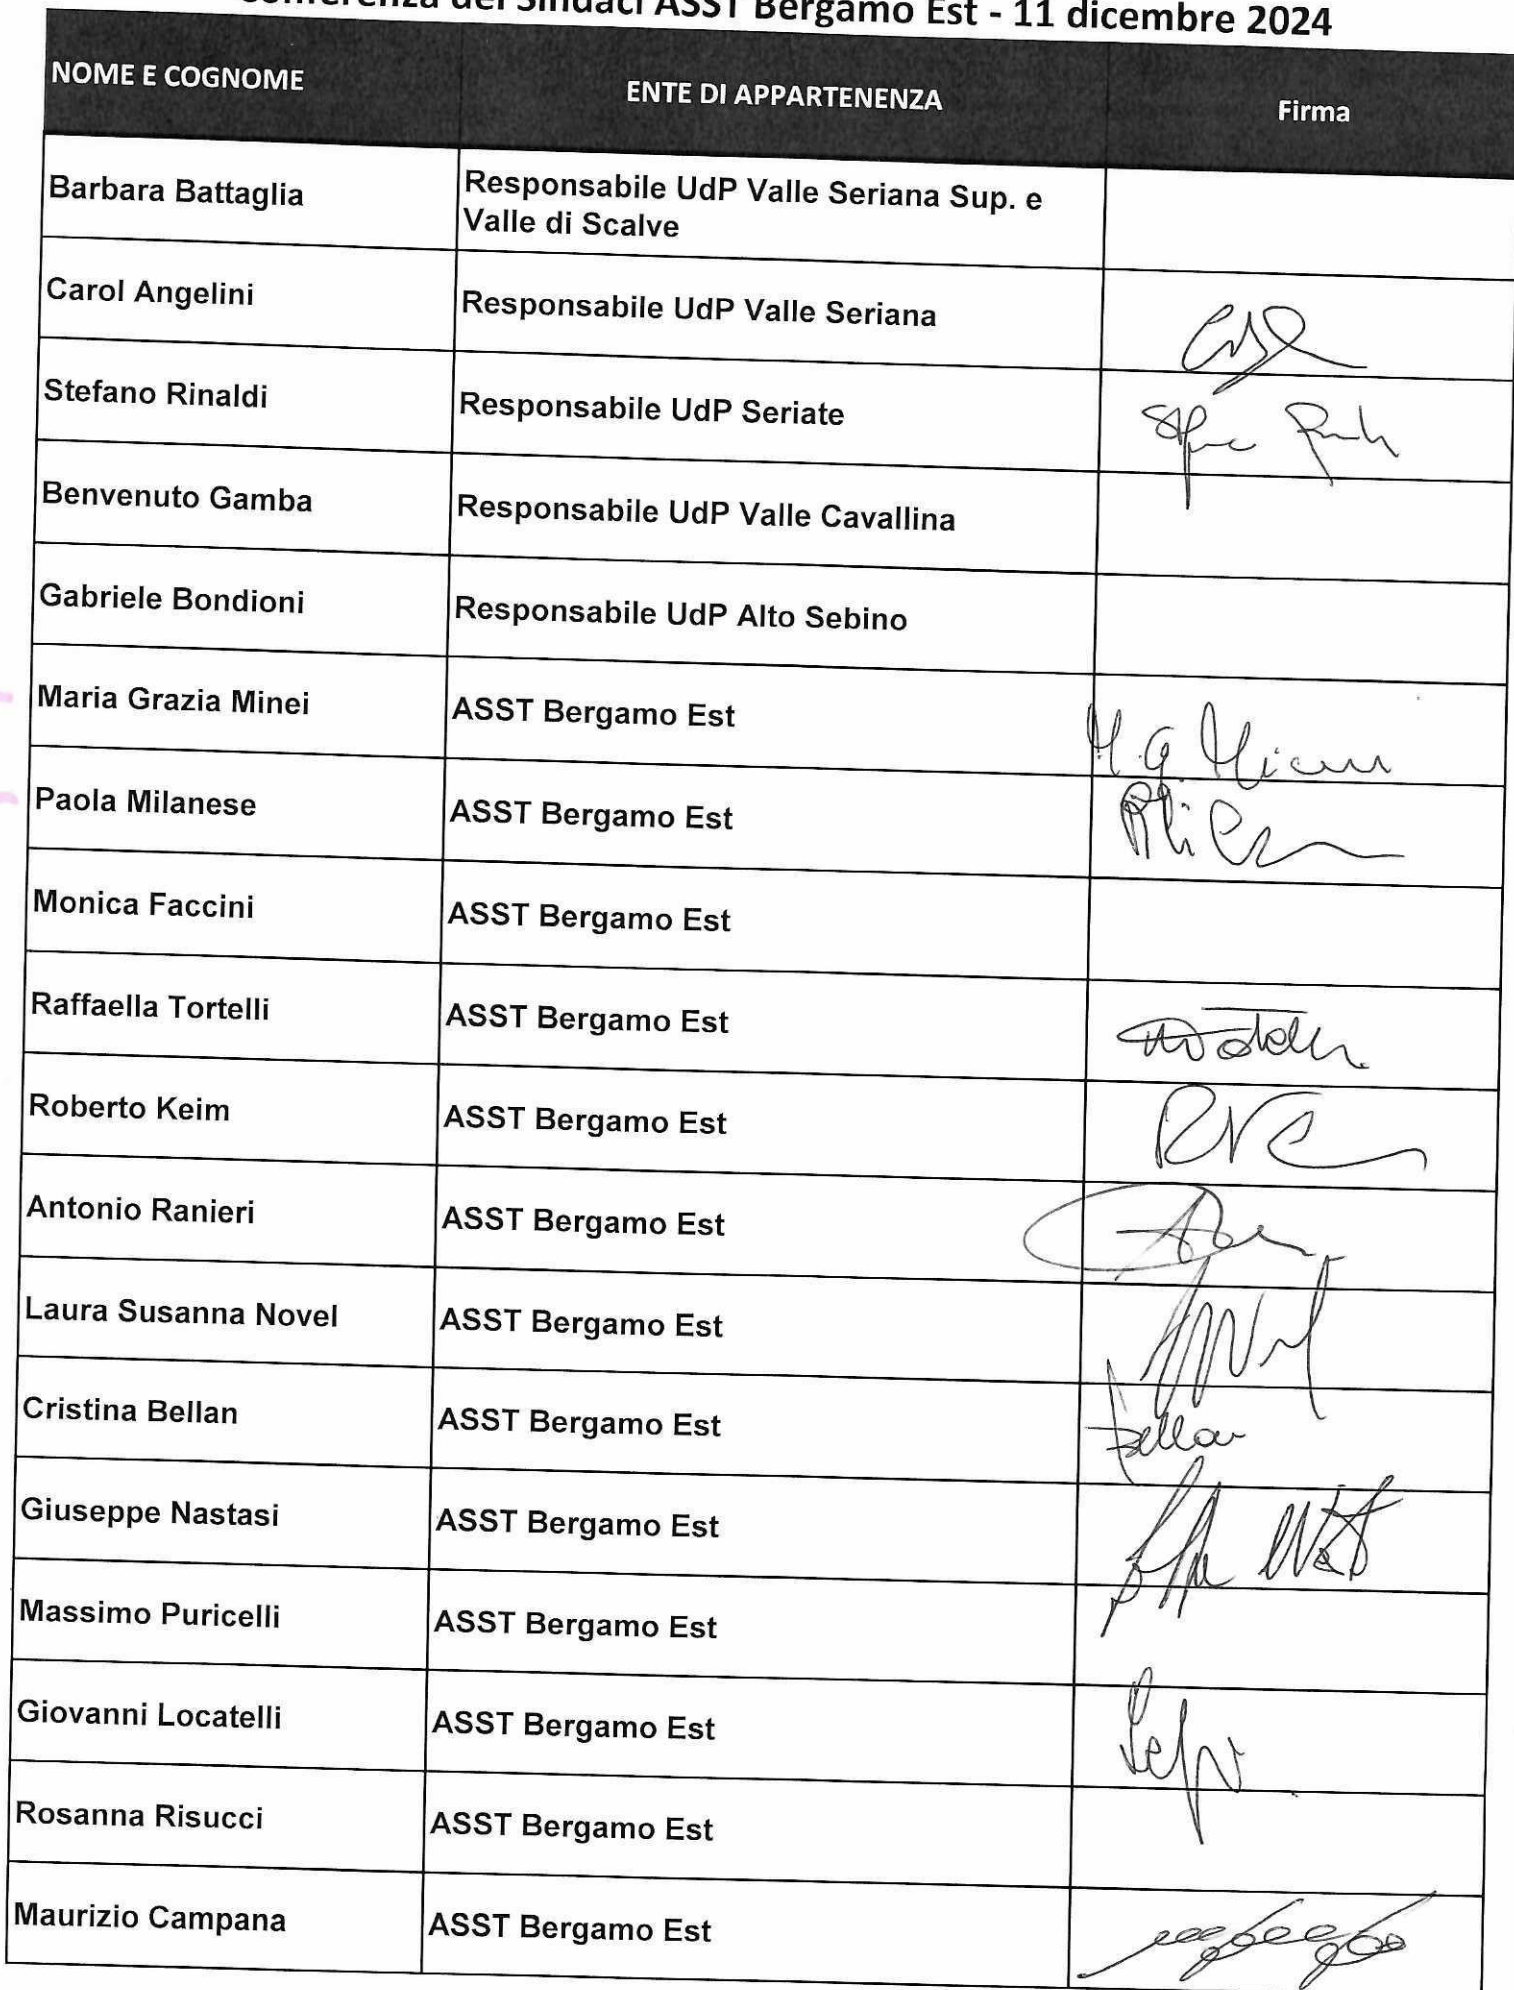 Conferenza dei Sindaci ASST Bergamo Est - 11 dicembre 2024
NOME E COGNOME ENTE DI APPARTENENZA Firma
Barbara Battaglia Responsabile UdP Valle Seriana Sup. e
Valle di Scalve
Carol Angelini Responsabile UdP Valle Seriana
Stefano Rinaldi Responsabile UdP Seriate
Benvenuto Gamba Responsabile UdP Valle Cavallina
Gabriele Bondioni Responsabile UdP Alto Sebino
Maria Grazia Minei ASST Bergamo Est
Paola Milanese ASST Bergamo Est
Monica Faccini ASST Bergamo Est
Raffaella Tortelli ASST Bergamo Est
Roberto Keim ASST Bergamo Est
Antonio Ranieri ASST Bergamo Est
Laura Susanna Novel ASST Bergamo Est
Cristina Bellan ASST Bergamo Est
Giuseppe Nastasi ASST Bergamo Est
Massimo Puricelli ASST Bergamo Est
Giovanni Locatelli ASST Bergamo Est
Rosanna Risucci ASST Bergamo Est
Maurizio Campana ASST Bergamo Est